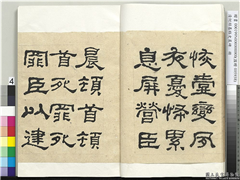 恢壹變夙
夜憂怖累
息屏營臣
晨頓首頓
首死罪死
罪臣以建
4